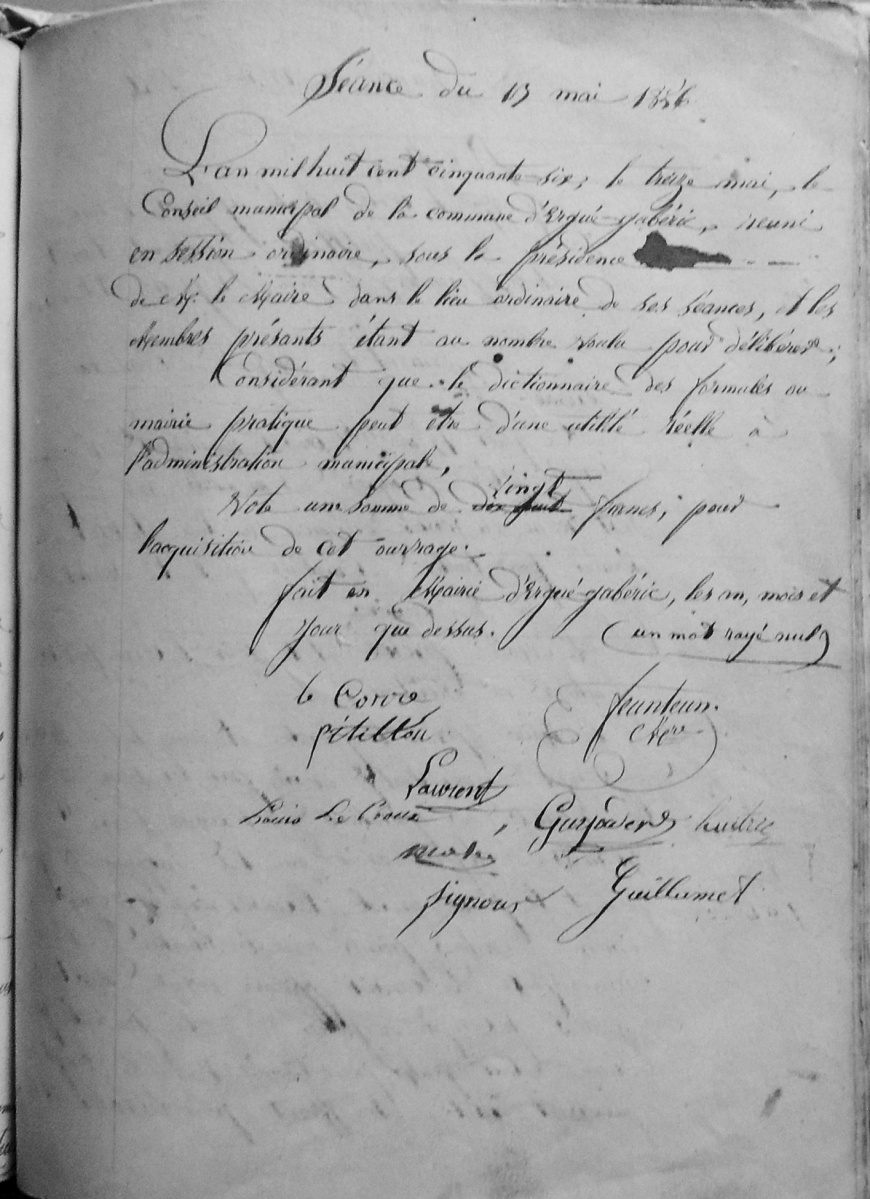 Séance du 13 mai 1856
L'an mil huit cent cinquante-six, le treize mai, le
Conseil municipal de la commune d'Ergué-gabéric, réuni
en session ordinaire, sous la présidence
de M. le Maire dans le lieu ordinaire de ses séances, et les
Membres présants étant au nombre voulu pour délibérer;
Considérant que le dictionnaire des formules ou
mairie pratique peut être d'une utilité réelle à
l'administration municipale,
vingt
Vote une somme de francs, pour
l'acquisition de cet ouvrage.
fait en Mairie d'Ergué gabéric, les an, mois et
jour que dessus. (un mot rayé nul)
le Corre
pétillon
feunteun.
Laurent
Louis Le Croux
signour
Guillumet